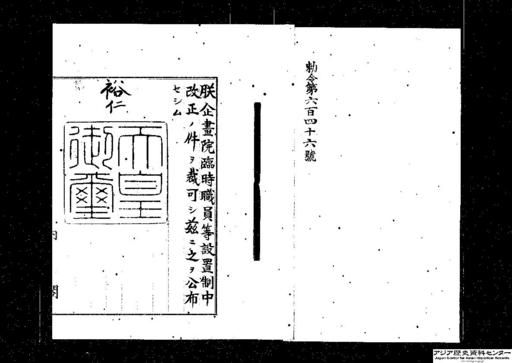 勅令第六百四十六號
朕企畫院臨時職員等設置制中
改正ノ件ヲ裁可シ茲ニ之ヲ公布
セシム
裕仁
天皇
御璽
内
閣
アジア歴史資料センター
Japan Center for Asian Historical Records